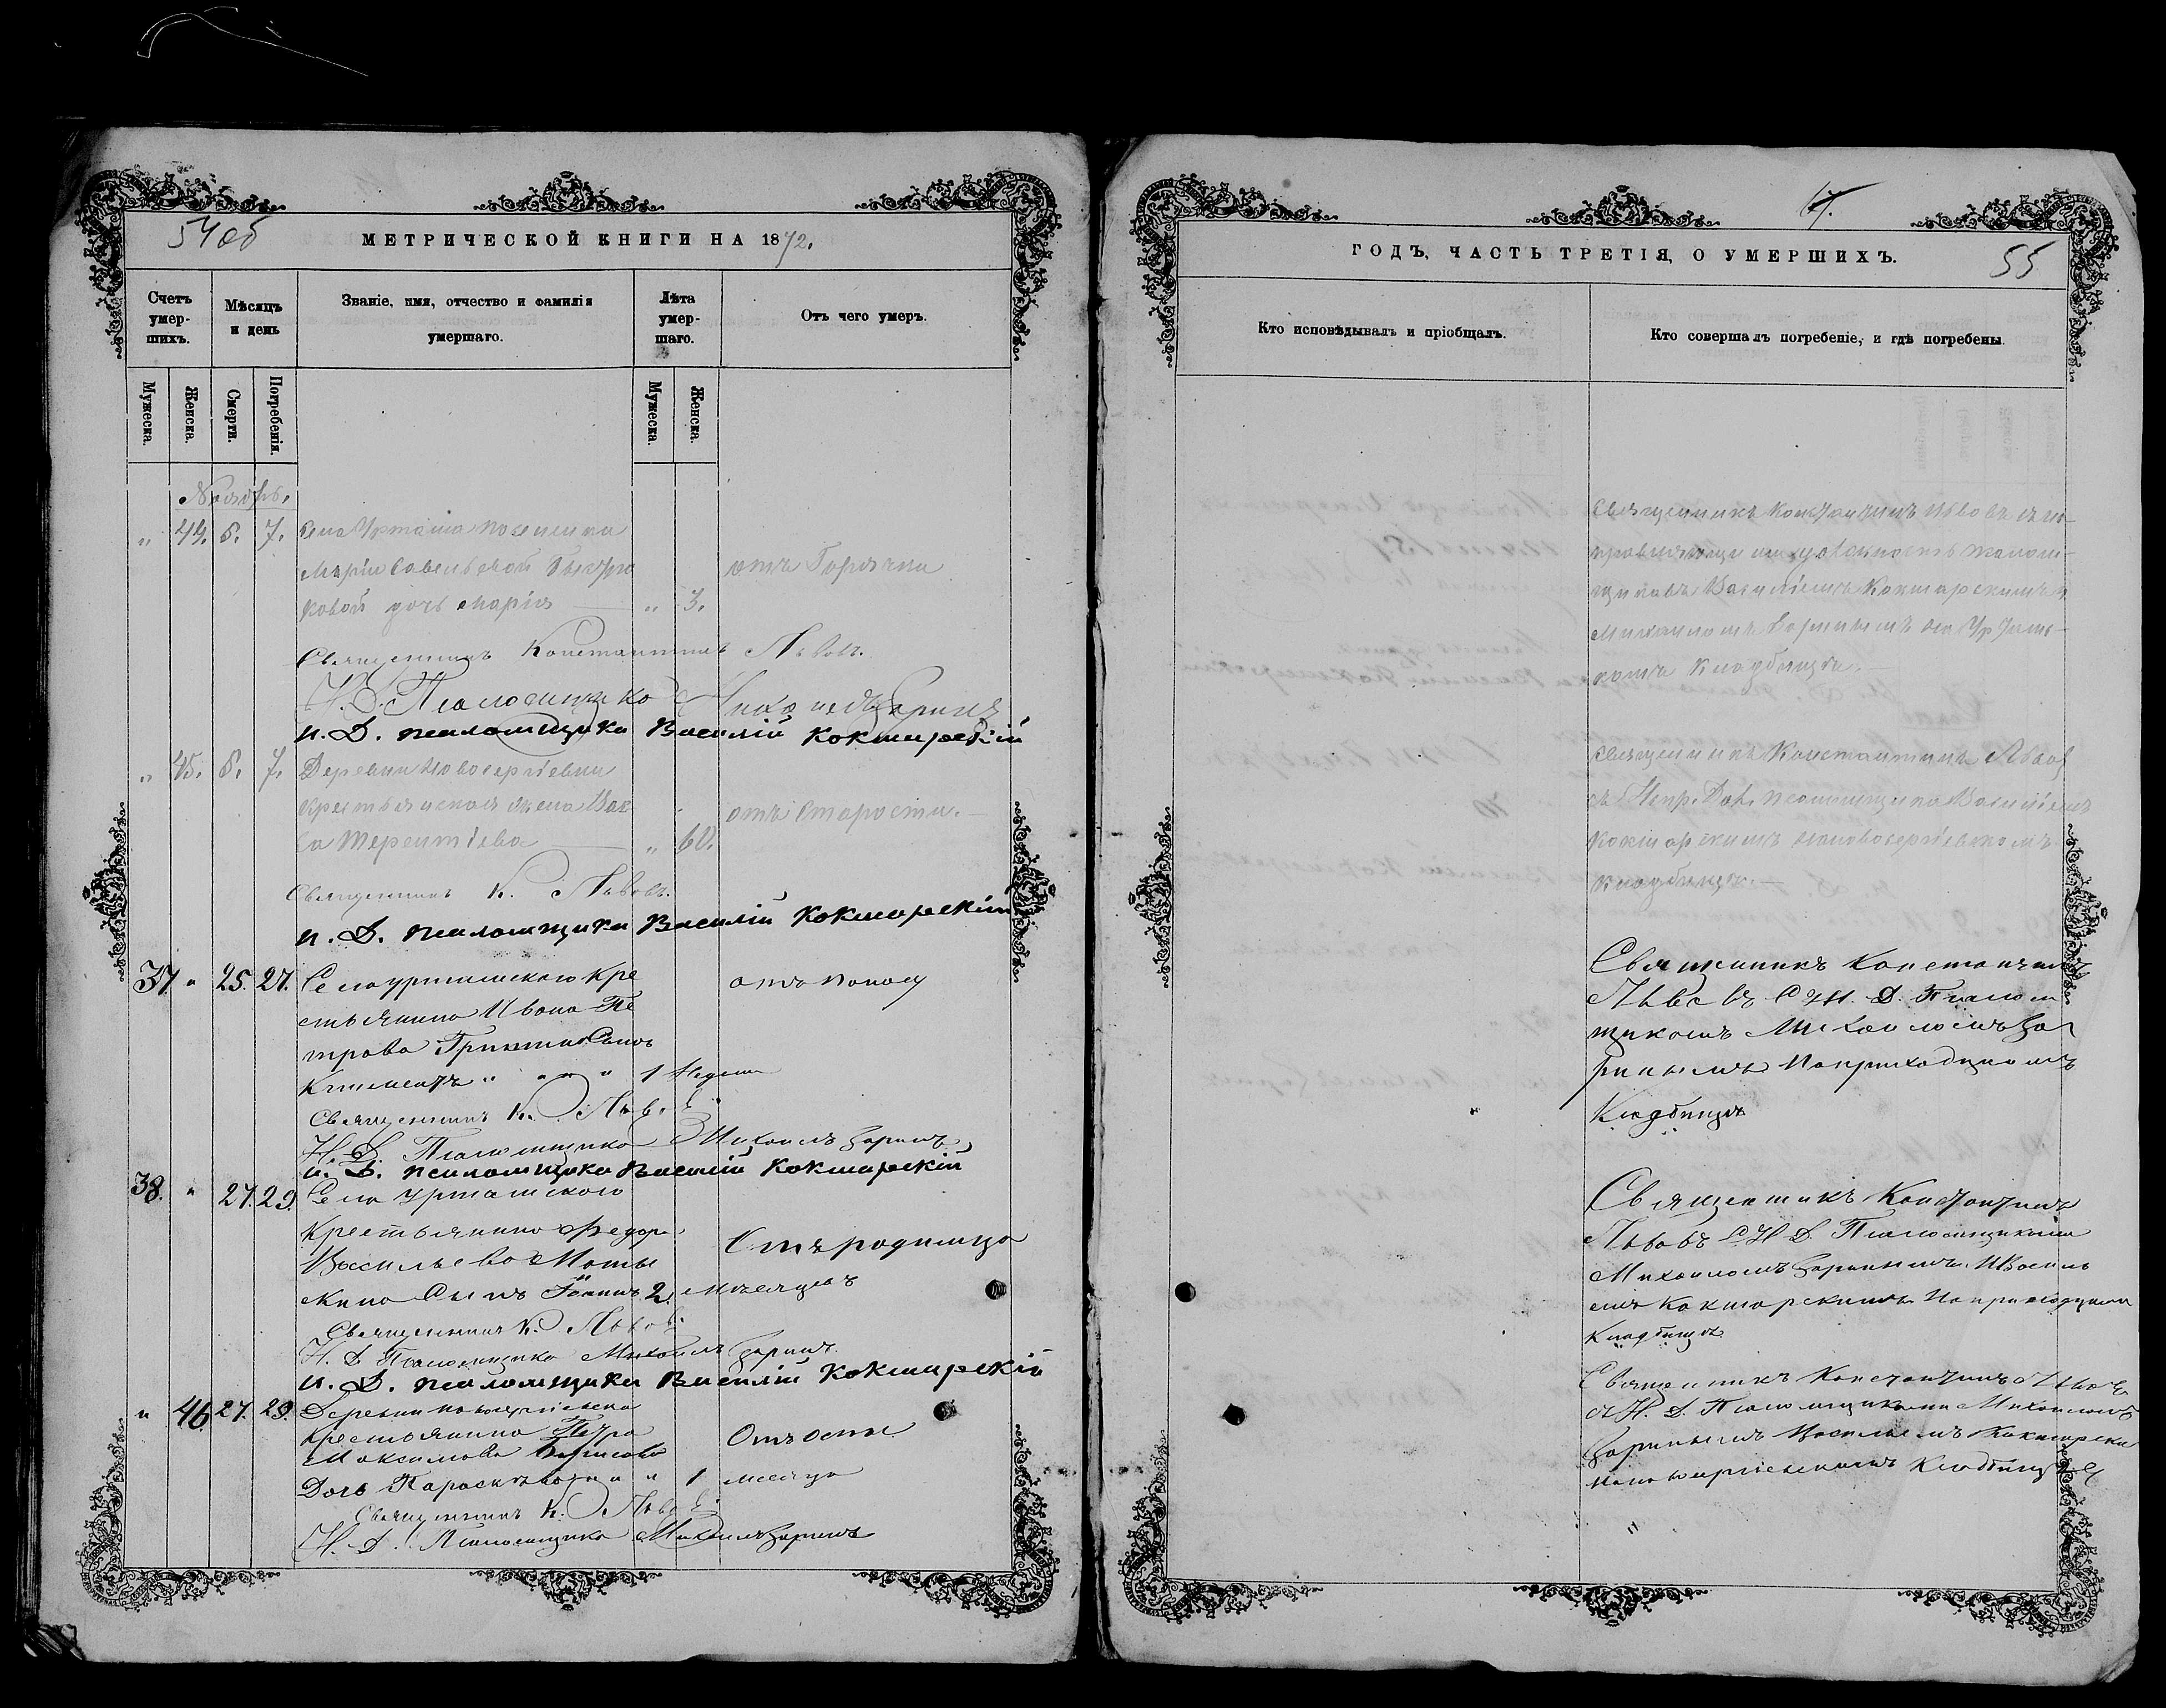 54об
МЕТРИЧЕСКОЙ КНИГИ НА 1872.
Счетъ умер-шихъ.
Мѣсяцъ и день
Званіе, имя, отчество и фамилія умершаго.
Лѣта умер-шаго.
Отъ чего умеръ.
Мужеска.
Женска.
Смерти.
Погребенія.
Мужеска.
Женска.
Ноябрь.
„ 44. 5. 7. Села
Маріи Савельевой
ковой дочь Марія „ 3.
отъ Горячки
Священникъ Константинъ Львовъ.
И. Д. Псаломщика Заринъ
И. Д. псаломщика Василій Кокшарскій
„ 45. 5. 7. Деревни Новосергіевки
крестьянская жена Вас
са Терентіева „ 60.
отъ старости.
Священникъ К. Львовъ.
И. Д. псаломщика Василій Кокшарскій
37. „ 25. 27. Села Урташскаго кре
стьянина Ивана Пе
трова сынъ
Климентъ „ „ „ „ 1 Недели
отъ поносу
Священникъ К. Львовъ
И. Д. Псаломщика Михаилъ Заринъ
И. Д. псаломщика Василій Кокшарскій
38. „ 27. 29. Села Урташскаго
Крестьянина Федора
Васильева
кина Сынъ 2. месяцевъ
Отъ родимца
Священникъ К. Львовъ
И. Д. Псаломщика Михаилъ Заринъ
И. Д. псаломщика Василій Кокшарскій
„ 46. 27. 29. Деревни Новосергіевки
Крестьянина Петра
Максимова Борисова
Дочь Параскева „ „ „ 1 месяца
Отъ оспы
Священникъ К. Львовъ
И. Д. Псаломщика Михаилъ Заринъ
17.
ГОДЪ, ЧАСТЬ ТРЕТІЯ, О УМЕРШИХЪ.
55
Кто исповѣдывалъ и пріобщалъ.
Кто совершалъ погребеніе, и гдѣ погребены.
Священникъ Константинъ Львовъ съ ис-
правляющими должность псалом-
щиковъ Василіемъ Кокшарскимъ и
Михаиломъ Заринымъ на Урташ-
кладбищѣ.
Священникъ Константинъ Львовъ
съ Испр. Дол. псаломщика Василіемъ
Кокшарскимъ на новосергіевскомъ
кладбищѣ.
Священникъ Константинъ
Львовъ съ И. Д. Псалом
щикомъ Михаиломъ За
ринымъ На приходскомъ
Кладбищѣ
Священникъ Константинъ
Львовъ съ И. Д. Псаломщиками
Михаиломъ Заринымъ И Васили
емъ Кокшарскимъ На приходскомъ
Кладбищѣ
Священникъ Константинъ Львовъ
съ И. Д. Псаломщиками Михаиломъ
Заринымъ Васильемъ Кокшарски
новосергіевскомъ Кладбищѣ